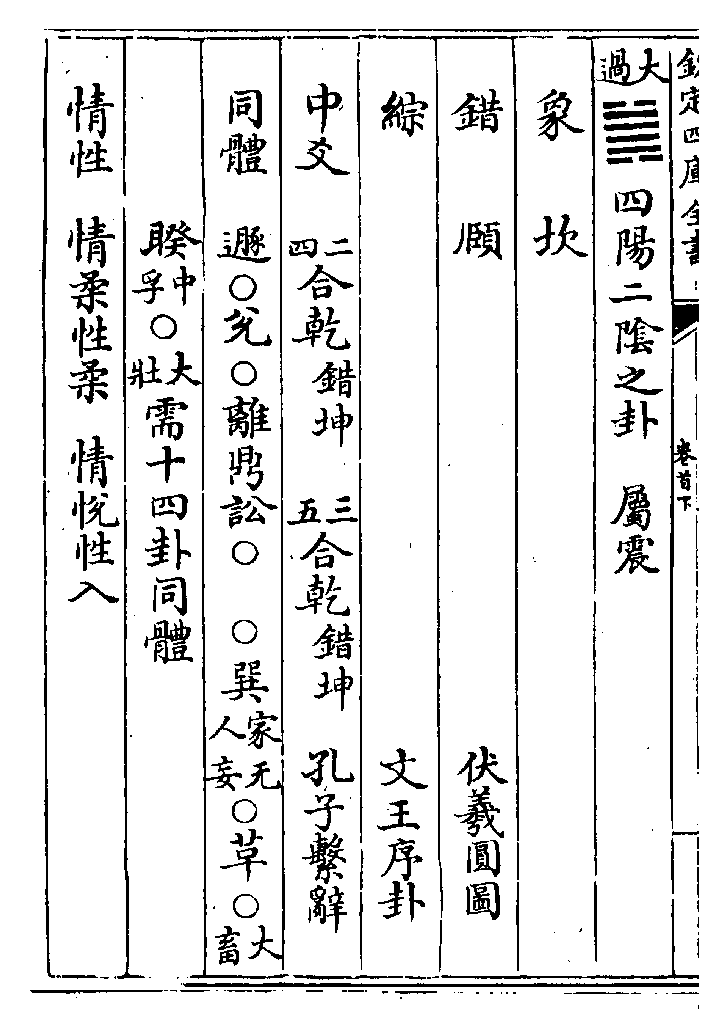 欽定四庫全書
卷首下
大過䷛四陽二陰之卦 屬震
象 坎
錯 頤 伏羲圓圖
綜 文王序卦
中爻 二四合乾錯坤 三五合乾錯坤 孔子繫辭
同體 遯○兊○離鼎訟○ ○巽家人无妄○草○大畜
睽中孚○大壯需十四卦同體
情性 情柔性柔 情悅性入